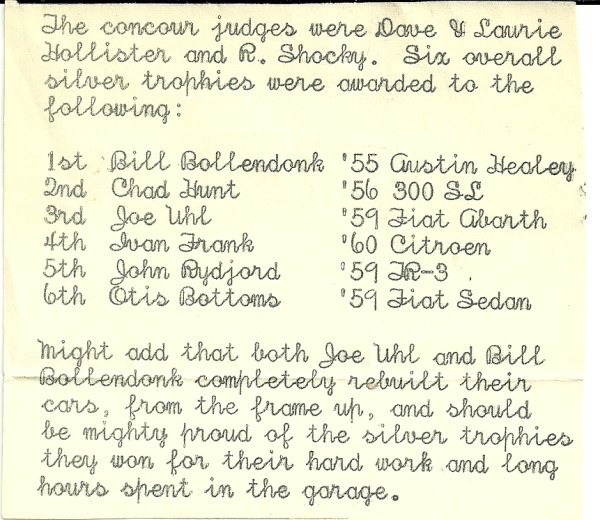 The concour judges were Dave & Laurie
Hollister and R. Shocky. Six overall
silver trophies were awarded to the
following:
1st Bill Bollendonk '55 Austin Healey
2nd Chad Hunt '56 300 SL
3rd Joe Uhl '59 Fiat Abarth
4th Ivan Frank '60 Citroen
5th John Rydjord '59 TR-3
6th Otis Bottoms '59 Fiat Sedan
Might add that both Joe Uhl and Bill
Bollendonk completely rebuilt their
cars, from the frame up, and should
be mighty proud of the silver trophies
they won for their hard work and long
hours spent in the garage.